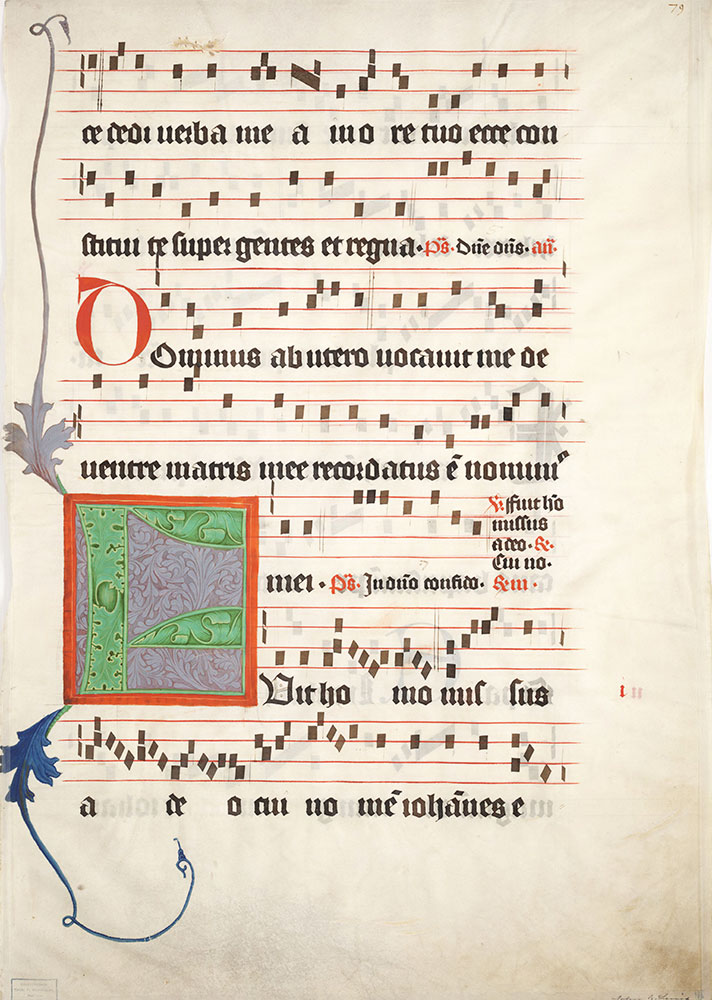 79
ce dedi uerba me a in o re tuo ecce con
stitui te super gentes et regna · Ps̄. Dn̄e dn̄s. an̄.
DOminus ab utero uocauit me de
uentre matris mee recordatus ē nominis
℣. Ffuit hō
missus
a deo. ℞.
Cui no.
mei · Ps̄. In dn̄o confido. ℞m.
FVit ho mo mis sus
a de o cui no mē ioha̅nes e